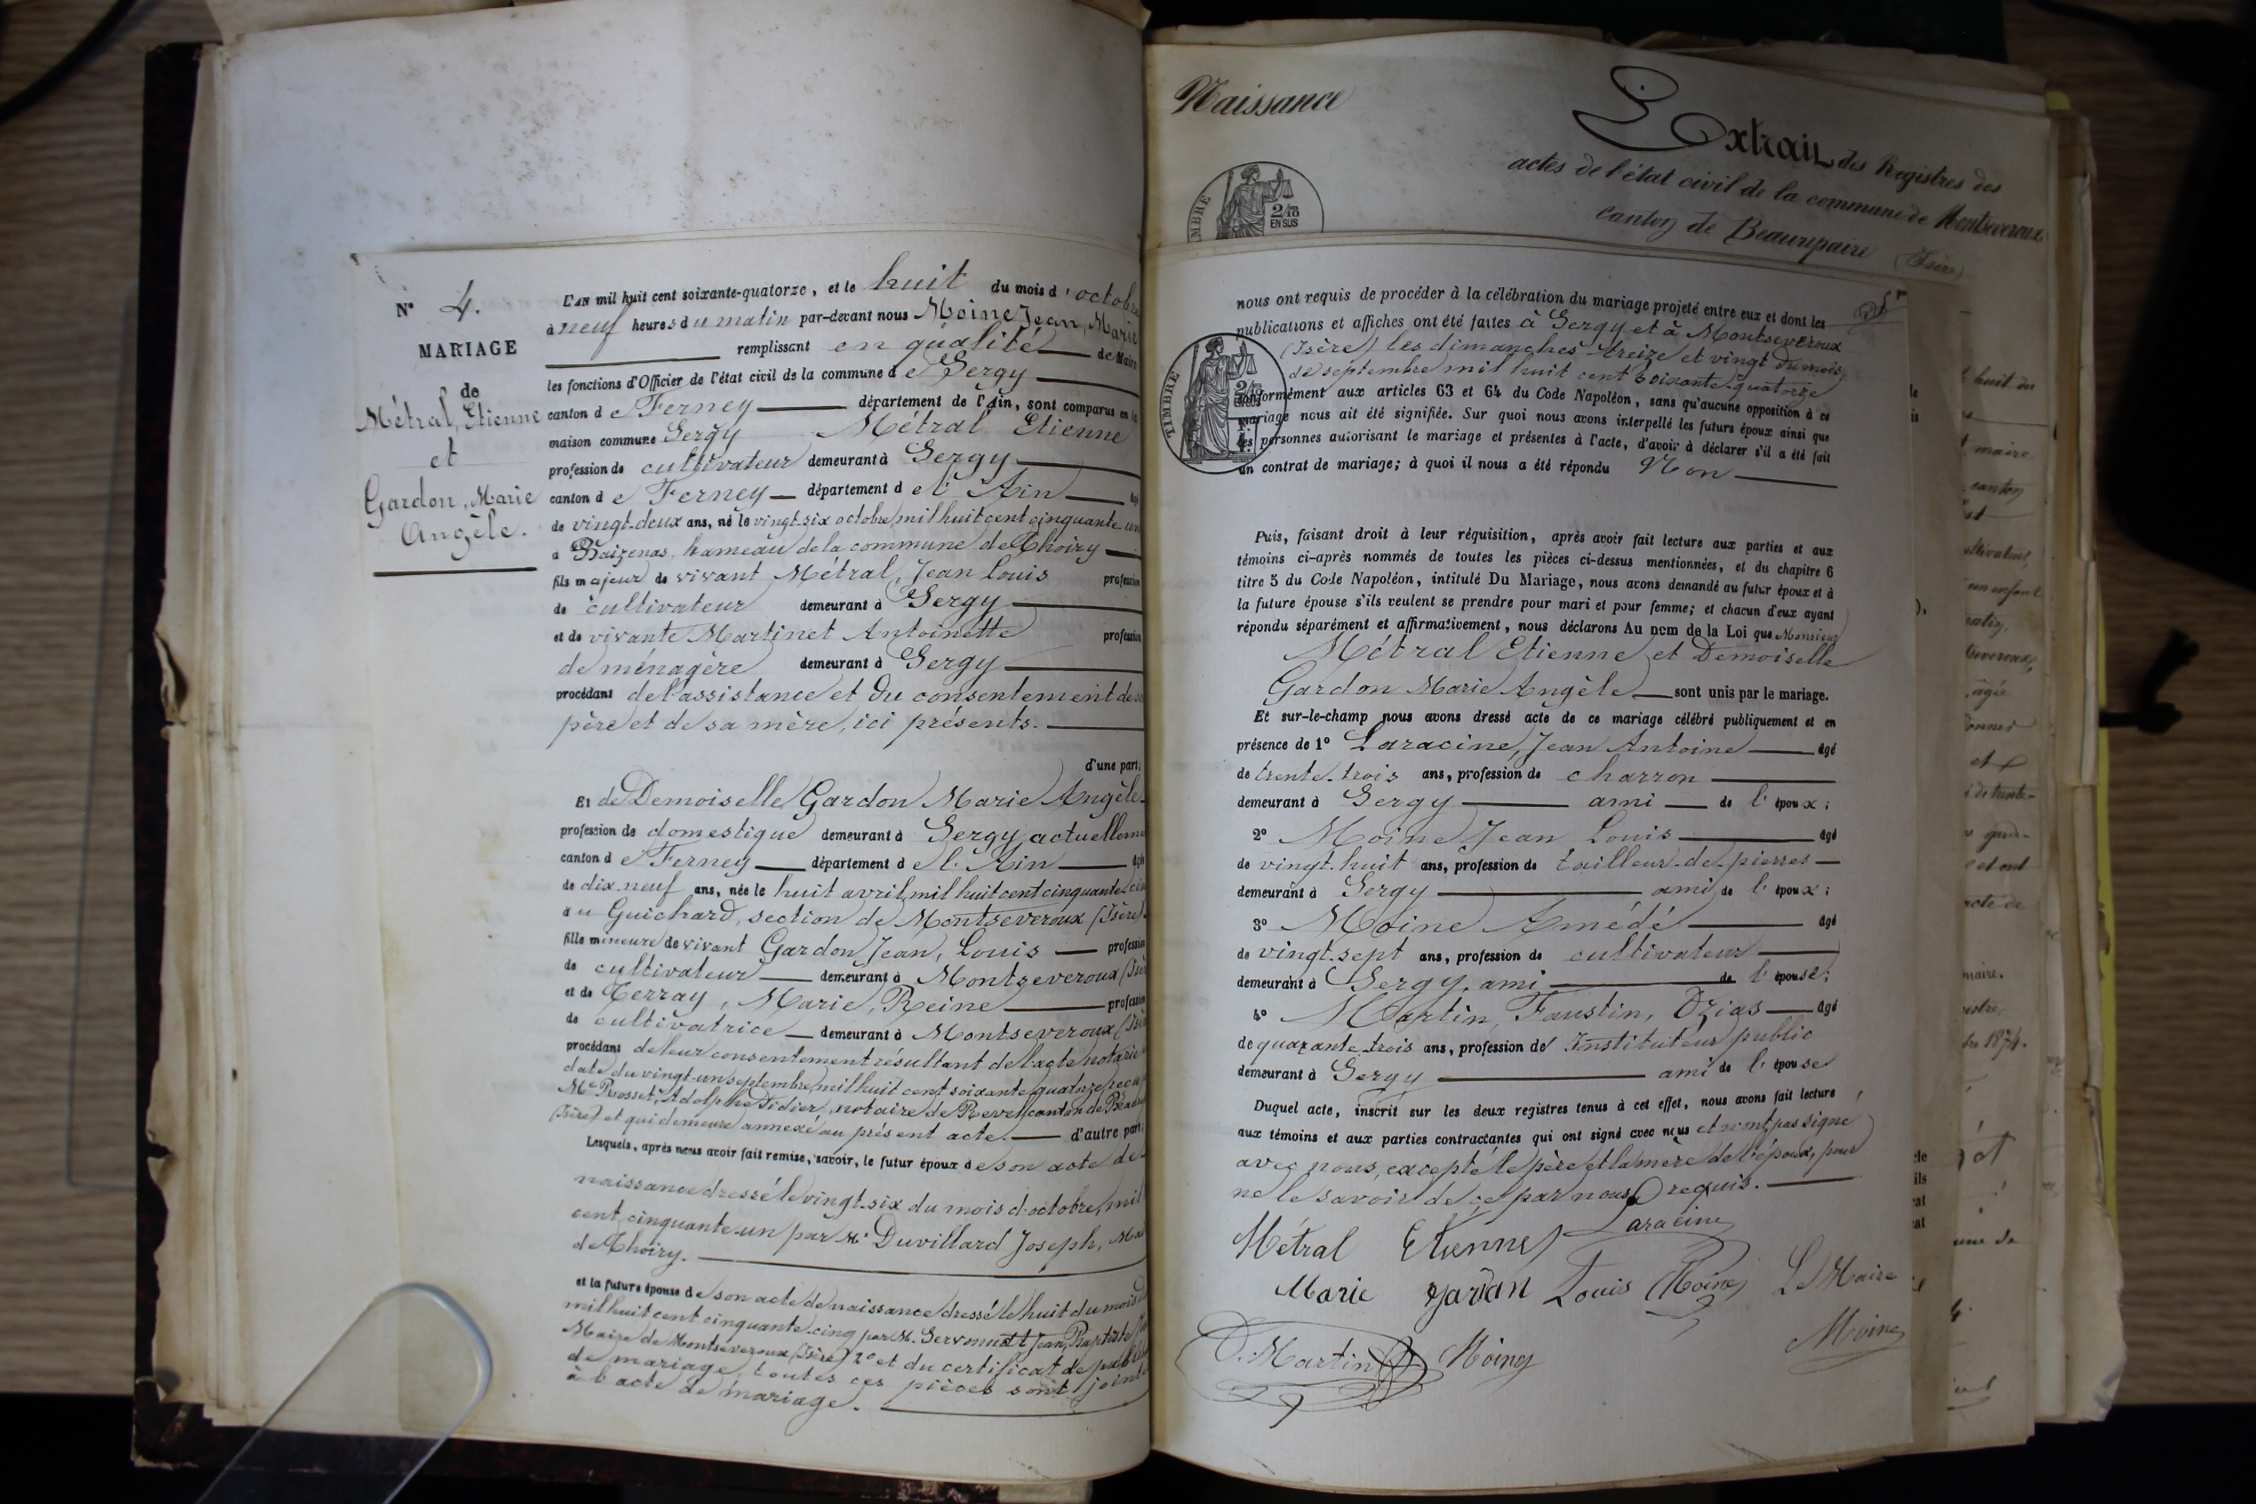 N° 4.
MARIAGE
de
Métral, Etienne
et
Gardon, Marie
Angèle.
L'AN mil huit cent soixante-quatorze, et le huit du mois d'octobre
à neuf heures du matin par-devant nous Moine Jean, Marie
remplissant en qualité de Maire
les fonctions d'Officier de l'état civil de la commune de Sergy
canton de Ferney département de l'Ain, sont comparus en la
maison commune Sergy Métral Etienne
profession de cultivateur demeurant à Sergy
canton de Ferney département de l'Ain âgé
de vingt-deux ans, né le vingt-six octobre mil huit cent cinquante un
à Baizenas, hameau de la commune de Thoiry
fils majeur de vivant Métral, Jean Louis profession
de cultivateur demeurant à Sergy
et de vivante Martinet Antoinette profession
de ménagère demeurant à Sergy
procédant de l'assistance et du consentement de
père et de sa mère, ici présents.
d'une part;
Et de Demoiselle Gardon Marie Angèle
profession de domestique demeurant à Sergy actuelleme
canton de Ferney département de l'Ain âgée
de dix-neuf ans, née le huit avril mil huit cent cinquante cin
au Guichard, section de Montseveroux (Isère)
fille mineure de vivant Gardon Jean, Louis profession
de cultivateur demeurant à Montseveroux (Isè
et de Terray, Marie, Reine profession
de cultivatrice demeurant à Montseveroux (Isè
procédant de leur consentement résultant de l'acte notarié
date du vingt-un septembre mil huit cent soixante quatorze reçu
Me Rosset, Adolphe Didier, notaire de Revel canton de Beau
(Isère) et qui demeure annexé au présent acte. d'autre part;
Lesquels, après nous avoir fait remise, savoir, le futur époux de son acte de
naissance dressé le vingt-six du mois d'octobre mil
cent cinquante-un par Mr Duvillard Joseph, Mai
de Thoiry.
et la future épouse de son acte de naissance dressé le huit du mois d
mil huit cent cinquante-cinq par M. Servonnatt Jean, Baptiste
Maire de Montseveroux (Isère) 2° et du certificat de publi
de mariage, toutes ces pièces sont joint
à l'acte de mariage.
Naissance
Extrait des Registres des
actes de l'état civil de la commune de Montseveroux
canton de Beaurepaire (Isère)
TIMBRE
2/10
EN SUS
nous ont requis de procéder à la célébration du mariage projeté entre eux et dont les
publications et affiches ont été faites à Sergy et à Montseveroux
(Isère) les dimanches treize et vingt du mois
de septembre mil huit cent soixante-quatorze
conformément aux articles 63 et 64 du Code Napoléon, sans qu'aucune opposition à ce
mariage nous ait été signifiée. Sur quoi nous avons interpellé les futurs époux ainsi que
les personnes autorisant le mariage et présentes à l'acte, d'avoir à déclarer s'il a été fait
un contrat de mariage; à quoi il nous a été répondu Non
TIMBRE
2/10
Puis, faisant droit à leur réquisition, après avoir fait lecture aux parties et aux
témoins ci-après nommés de toutes les pièces ci-dessus mentionnées, et du chapitre 6
titre 5 du Code Napoléon, intitulé Du Mariage, nous avons demandé au futur époux et à
la future épouse s'ils veulent se prendre pour mari et pour femme; et chacun d'eux ayant
répondu séparément et affirmativement, nous déclarons Au nom de la Loi que Monsieur
Métral Etienne et Demoiselle
Gardon Marie Angèle sont unis par le mariage.
Et sur-le-champ nous avons dressé acte de ce mariage célébré publiquement et en
présence de 1° Laracine, Jean Antoine âgé
de trente-trois ans, profession de charron
demeurant à Sergy ami de l'époux;
2° Moine Jean Louis âgé
de vingt-huit ans, profession de tailleur-de-pierres
demeurant à Sergy ami de l'époux;
3° Moine Amédé âgé
de vingt-sept ans, profession de cultivateur
demeurant à Sergy, ami de l'épouse;
4° Martin, Faustin, Ozias âgé
de quarante-trois ans, profession d'Instituteur public
demeurant à Sergy ami de l'épouse
Duquel acte, inscrit sur les deux registres tenus à cet effet, nous avons fait lecture
aux témoins et aux parties contractantes qui ont signé avec nous et n'ont pas signé
avec nous, excepté le père et la mère de l'époux, pour
ne le savoir de ce par nous requis.
Laracine
Métral Etienne
Marie Gardan Louis Moine Le Maire
O. Martin Moine Moine
huit du
maire
canton
maire.
1874.